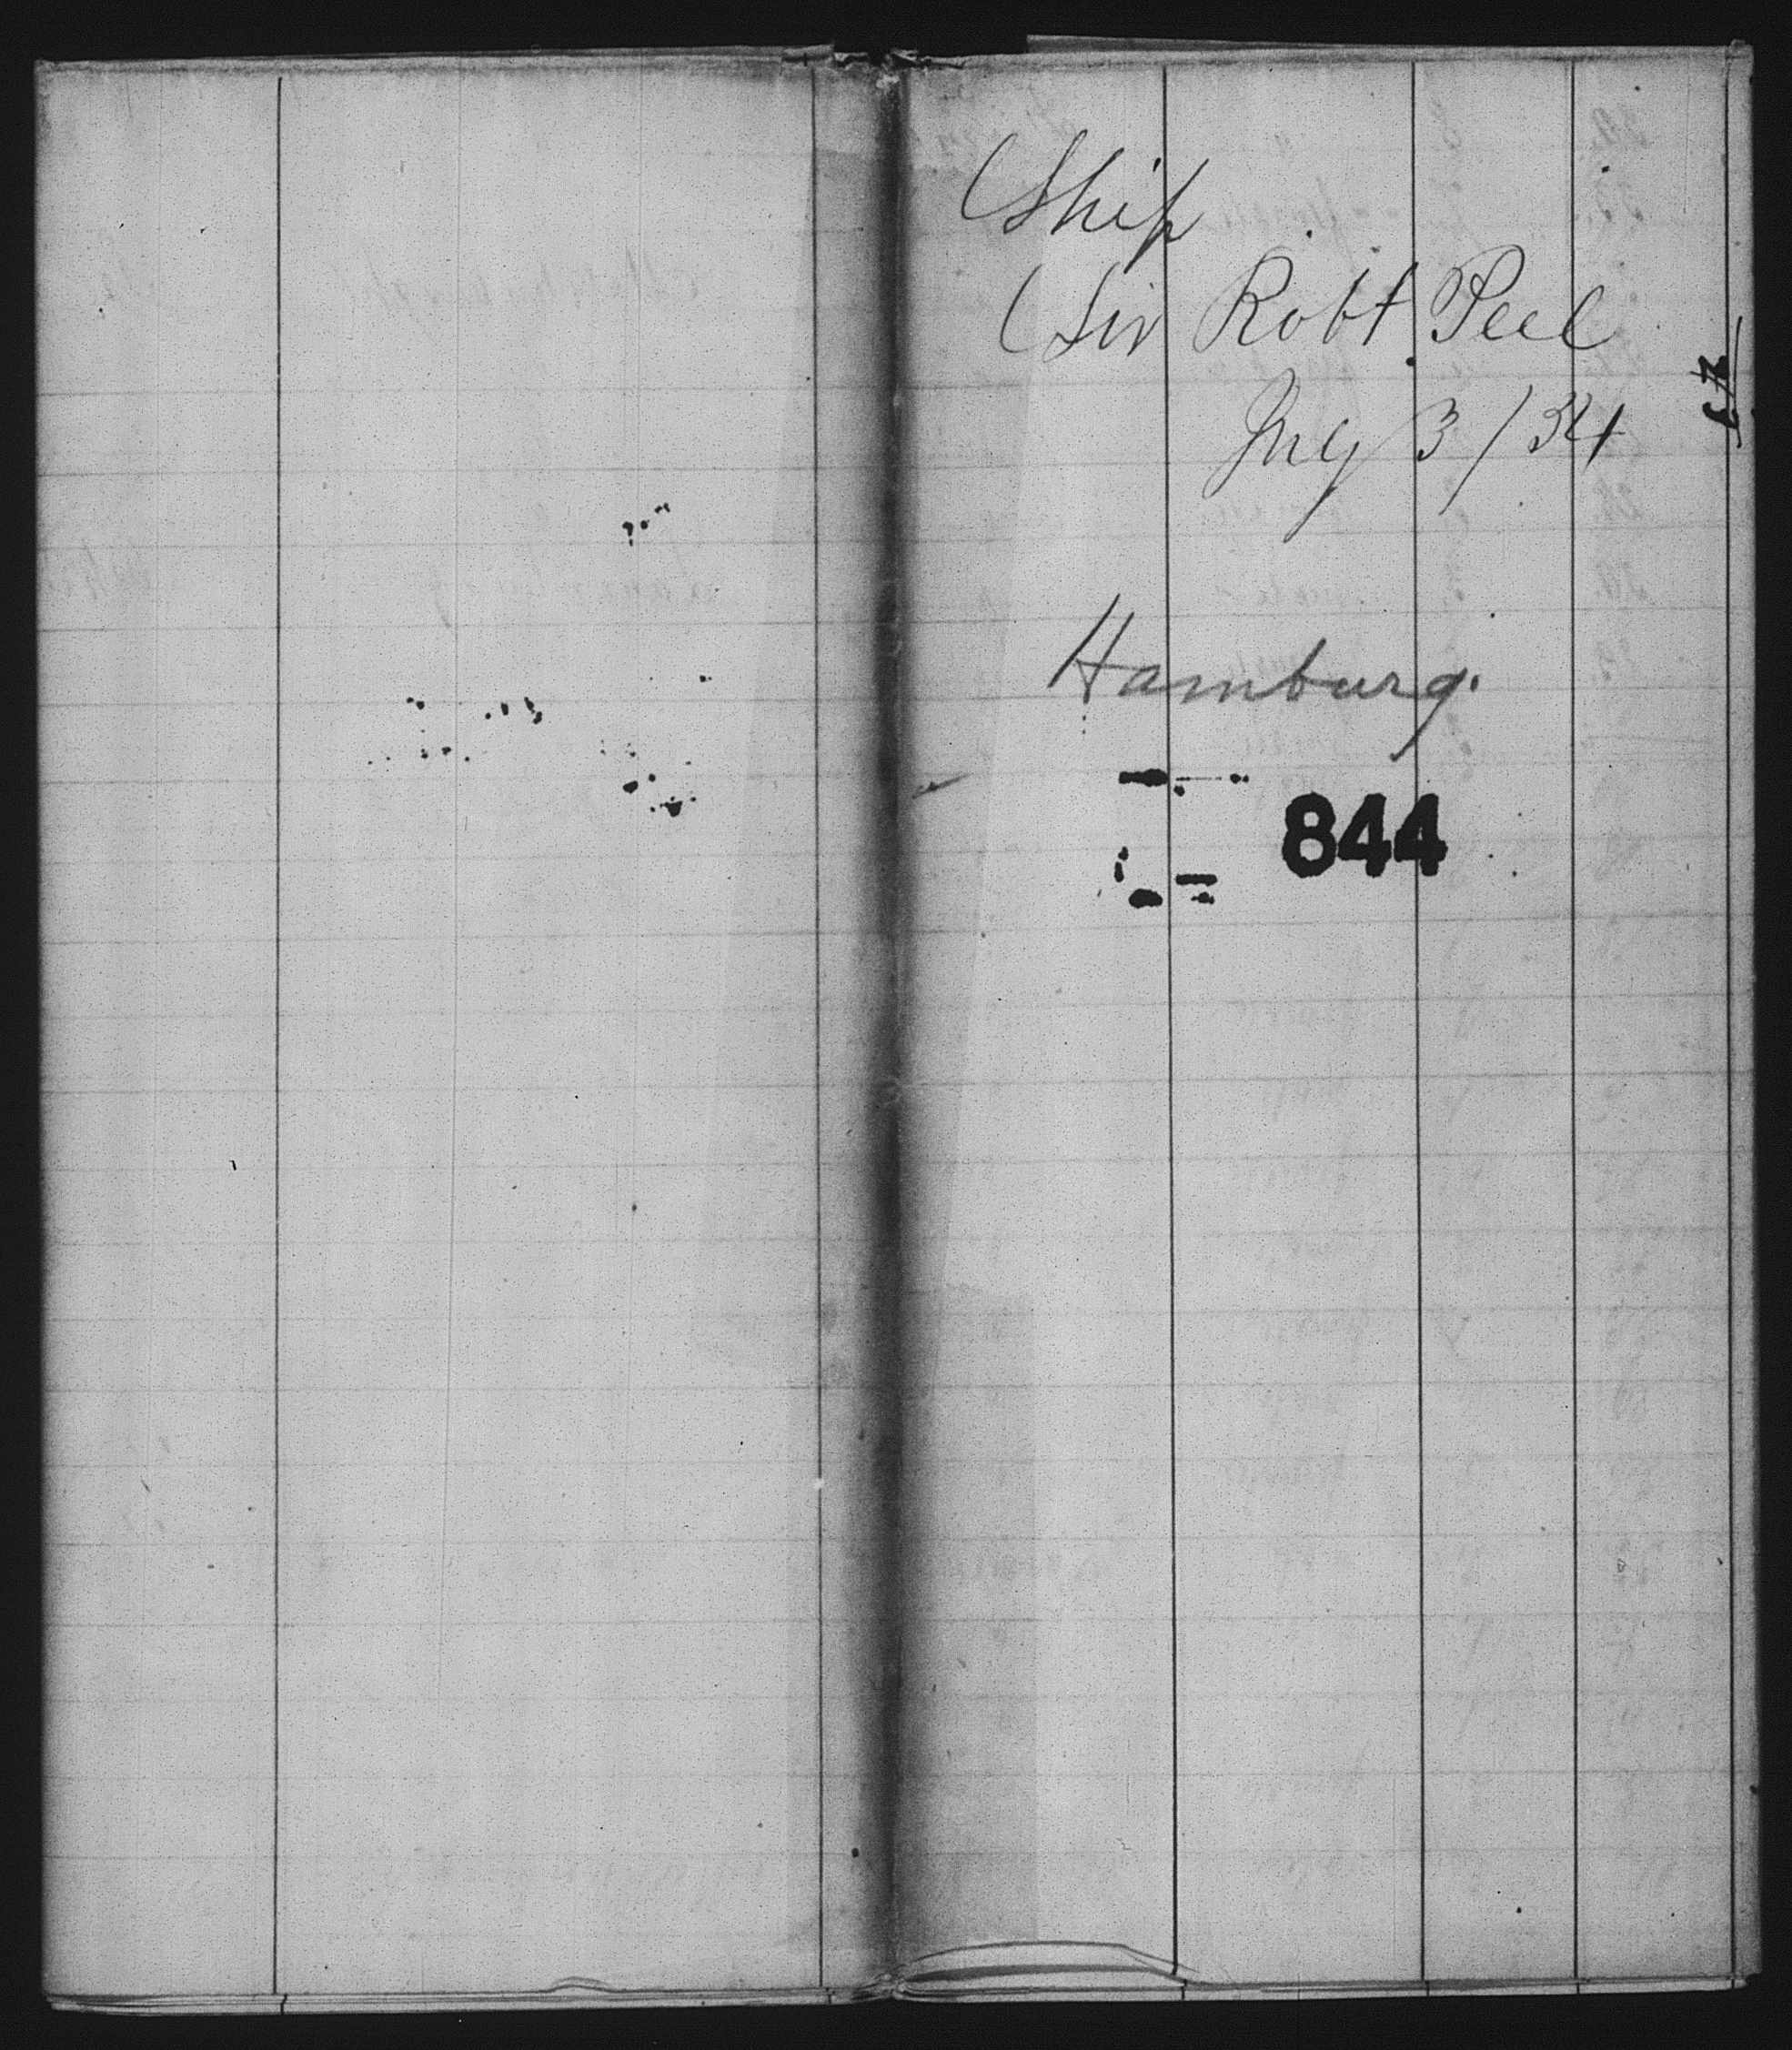 Ship
Sir Robt. Peel
July 3/54
Hamburg.
844